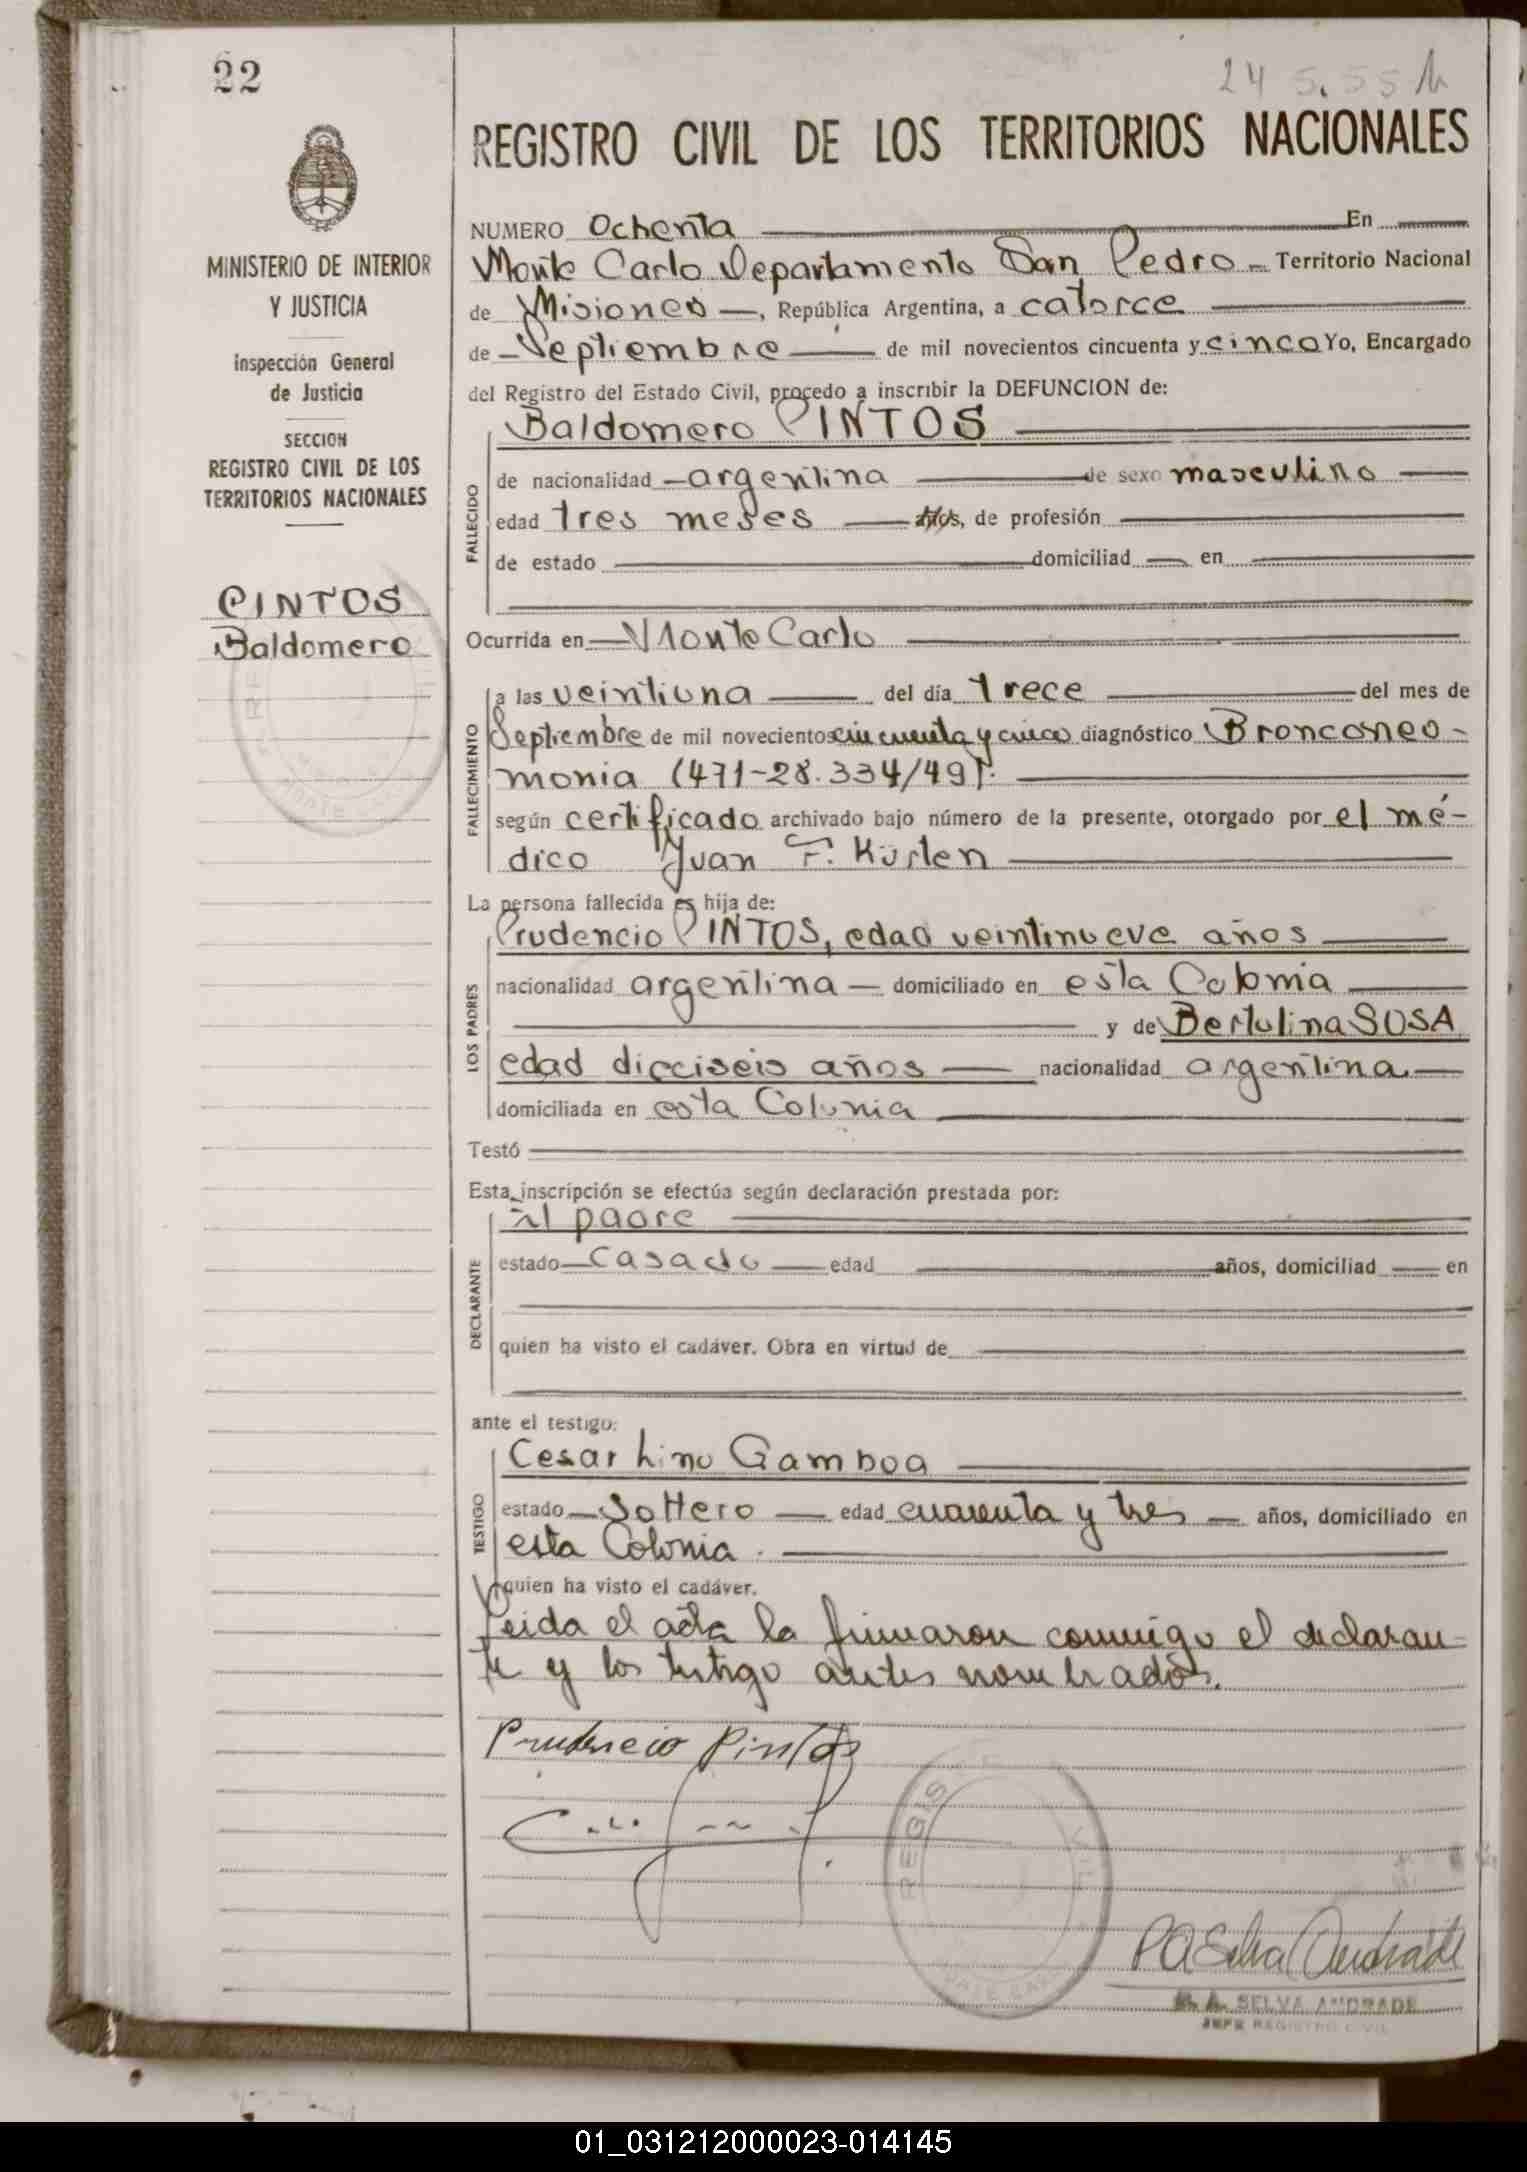 22
24 5.55
REGISTRO CIVIL DE LOS TERRITORIOS NACIONALES
MINISTERIO DE INTERIOR
Y JUSTICIA
Inspección General
de Justicia
SECCION
REGISTRO CIVIL DE LOS
TERRITORIOS NACIONALES
PINTOS
Baldomero
NUMERO Ochenta En
Monte Carlo Departamento San Pedro Territorio Nacional
de Misiones, República Argentina, a catorce
de Septiembre de mil novecientos cincuenta y cinco Yo, Encargado
del Registro del Estado Civil, procedo a inscribir la DEFUNCION de:
FALLECIDO
Baldomero PINTOS
de nacionalidad argentina de sexo masculino
edad tres meses años, de profesión
de estado domiciliad en
Ocurrida en Monte Carlo
FALLECIMIENTO
a las veintiuna del día trece del mes de
Septiembre de mil novecientos cincuenta y cinco diagnóstico Bronconeo-
monia (471-28.334/49).
según certificado archivado bajo número de la presente, otorgado por el mé-
dico Juan F. Kürten
La persona fallecida es hija de:
LOS PADRES
Prudencio PINTOS, edad veintinueve años
nacionalidad argentina domiciliado en esta Colonia
y de Bertulina SOSA
edad dieciseis años nacionalidad argentina
domiciliada en esta Colonia
Testó
Esta inscripción se efectúa según declaración prestada por:
DECLARANTE
El padre
estado Casado edad años, domiciliad en
quien ha visto el cadáver. Obra en virtud de
ante el testigo:
TESTIGO
Cesar Lino Gamboa
estado Soltero edad cuarenta y tres años, domiciliado en
esta Colonia.
quien ha visto el cadáver.
Leida el acta la firmaron conmigo el declaran-
te y los testigo antes nombrados.
Prudencio Pintos
REGIS CIVIL
MONTE CARLO
P A Selva Andrade
P. A. SELVA ANDRADE
JEFE REGISTRO CIVIL
01_031212000023-014145